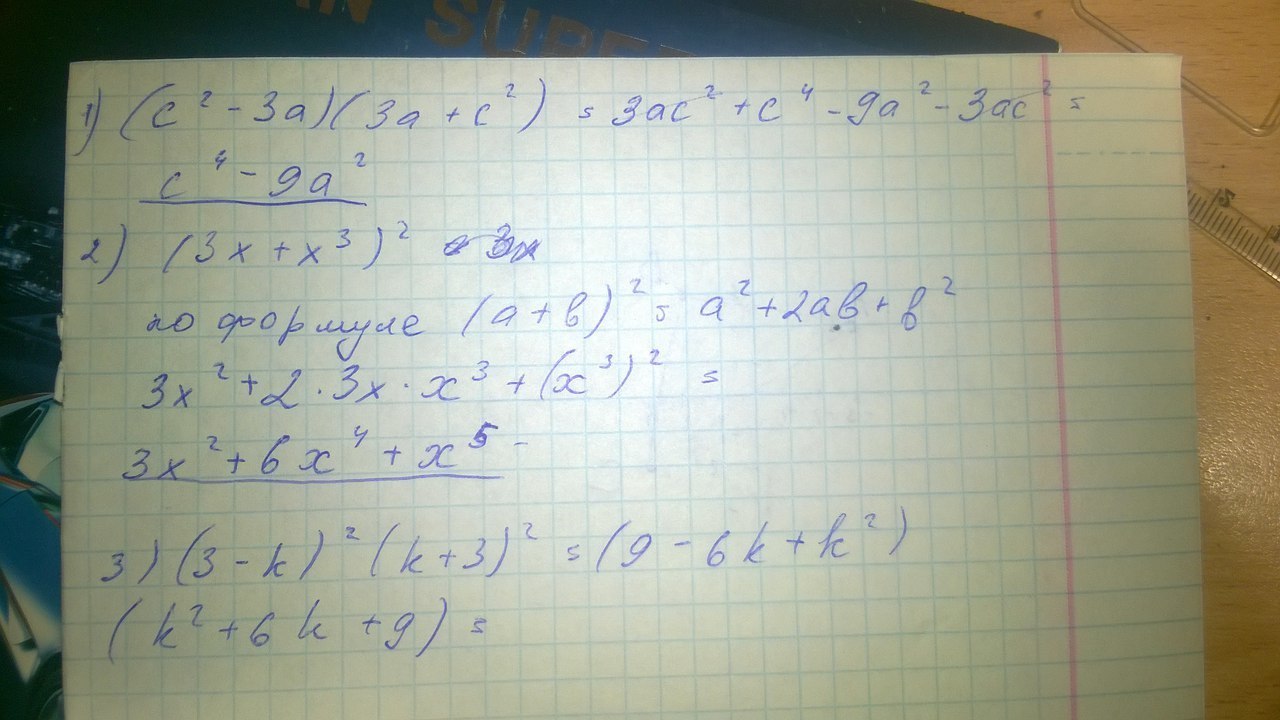 AN SUPER
1) (c² - 3a)(3a + c²) = 3ac² + c⁴ - 9a² - 3ac² =
c⁴ - 9a²
2) (3x + x³)²
по формуле (a + b)² = a² + 2ab + b²
3x² + 2 · 3x · x³ + (x³)² =
3x² + 6x⁴ + x⁵
3) (3 - k)² (k + 3)² = (9 - 6k + k²)
(k² + 6k + 9) =